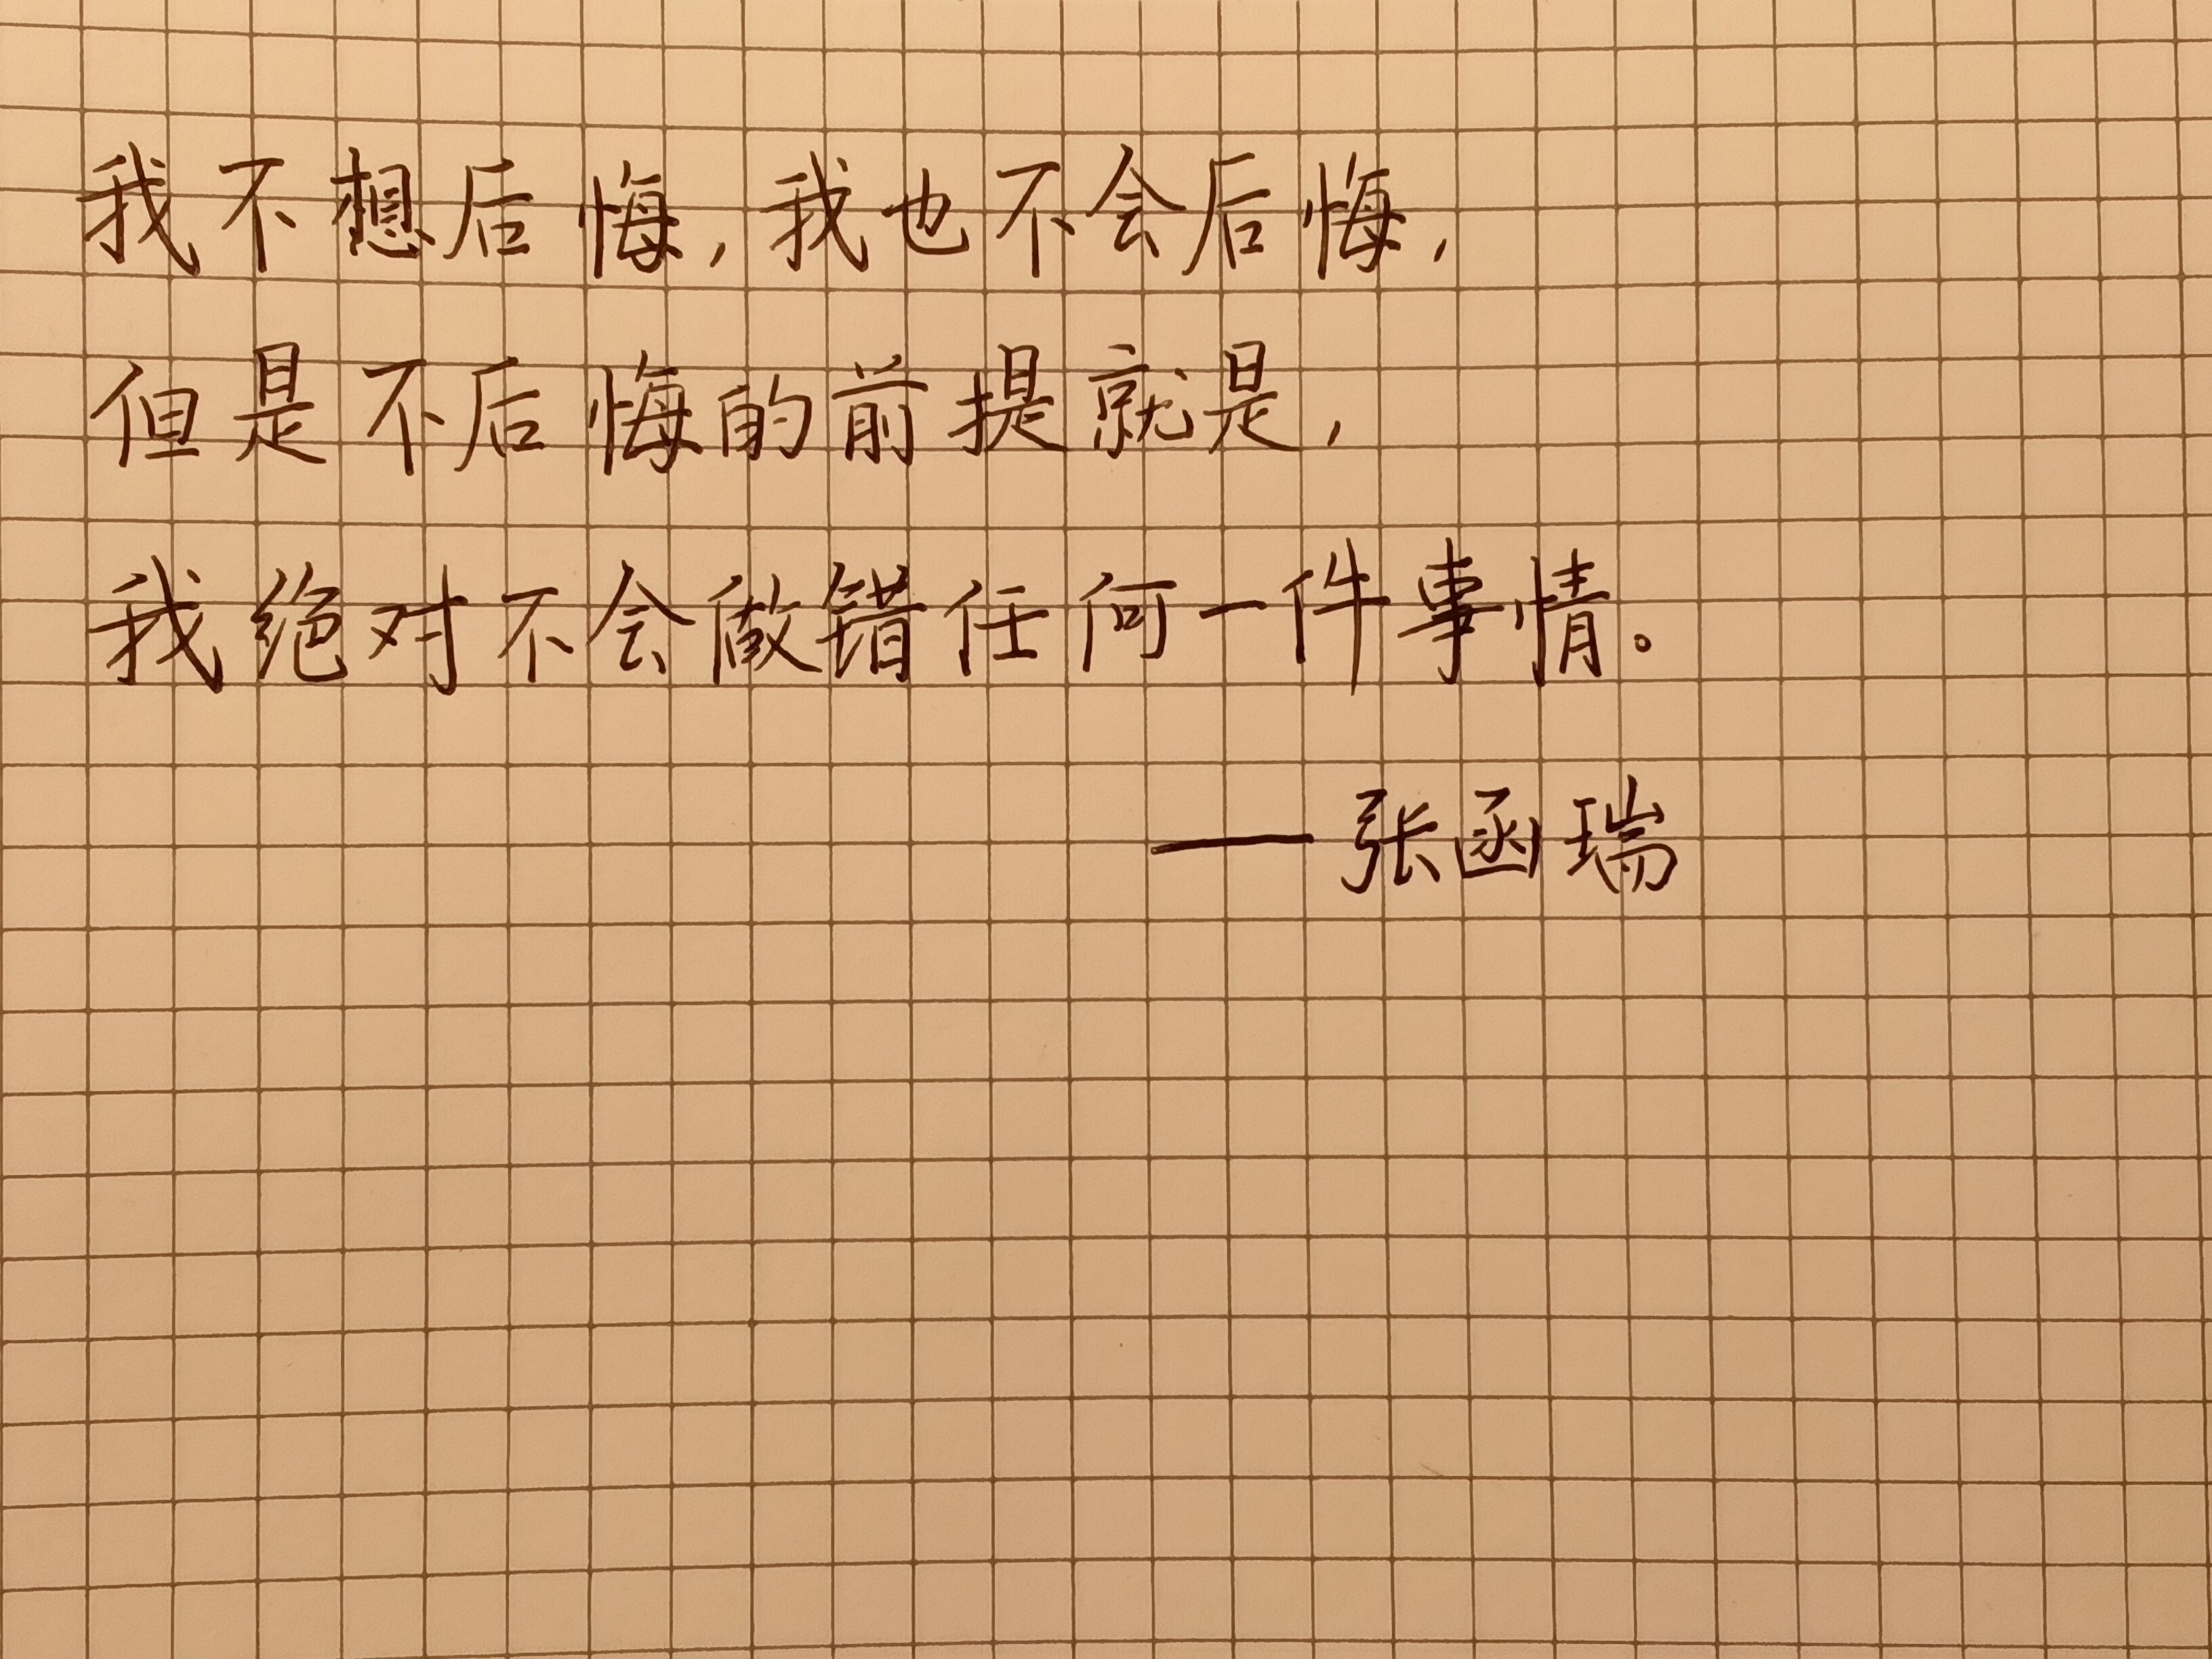 我不想后悔,我也不会后悔,
但是不后悔的前提就是,
我绝对不会做错任何一件事情。
——张函瑞